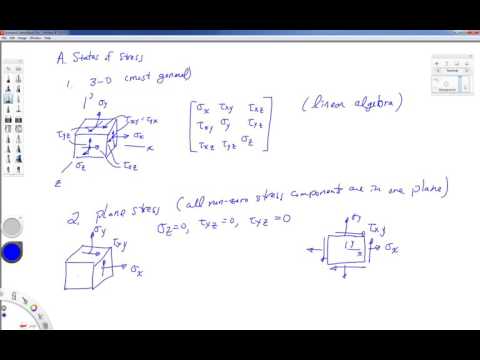 A. States of Stress
1. 3-D (most general)
y
σy
τxy = τyx
τyz
σx
x
τxz
σz
z
σx τxy τxz
τxy σy τyz
τxz τyz σz
(linear algebra)
2. plane stress (all non-zero stress components are in one plane)
σz=0, τxy=0, τyz=0
σy
τxy
σx
σy
τxy
σx
y
x